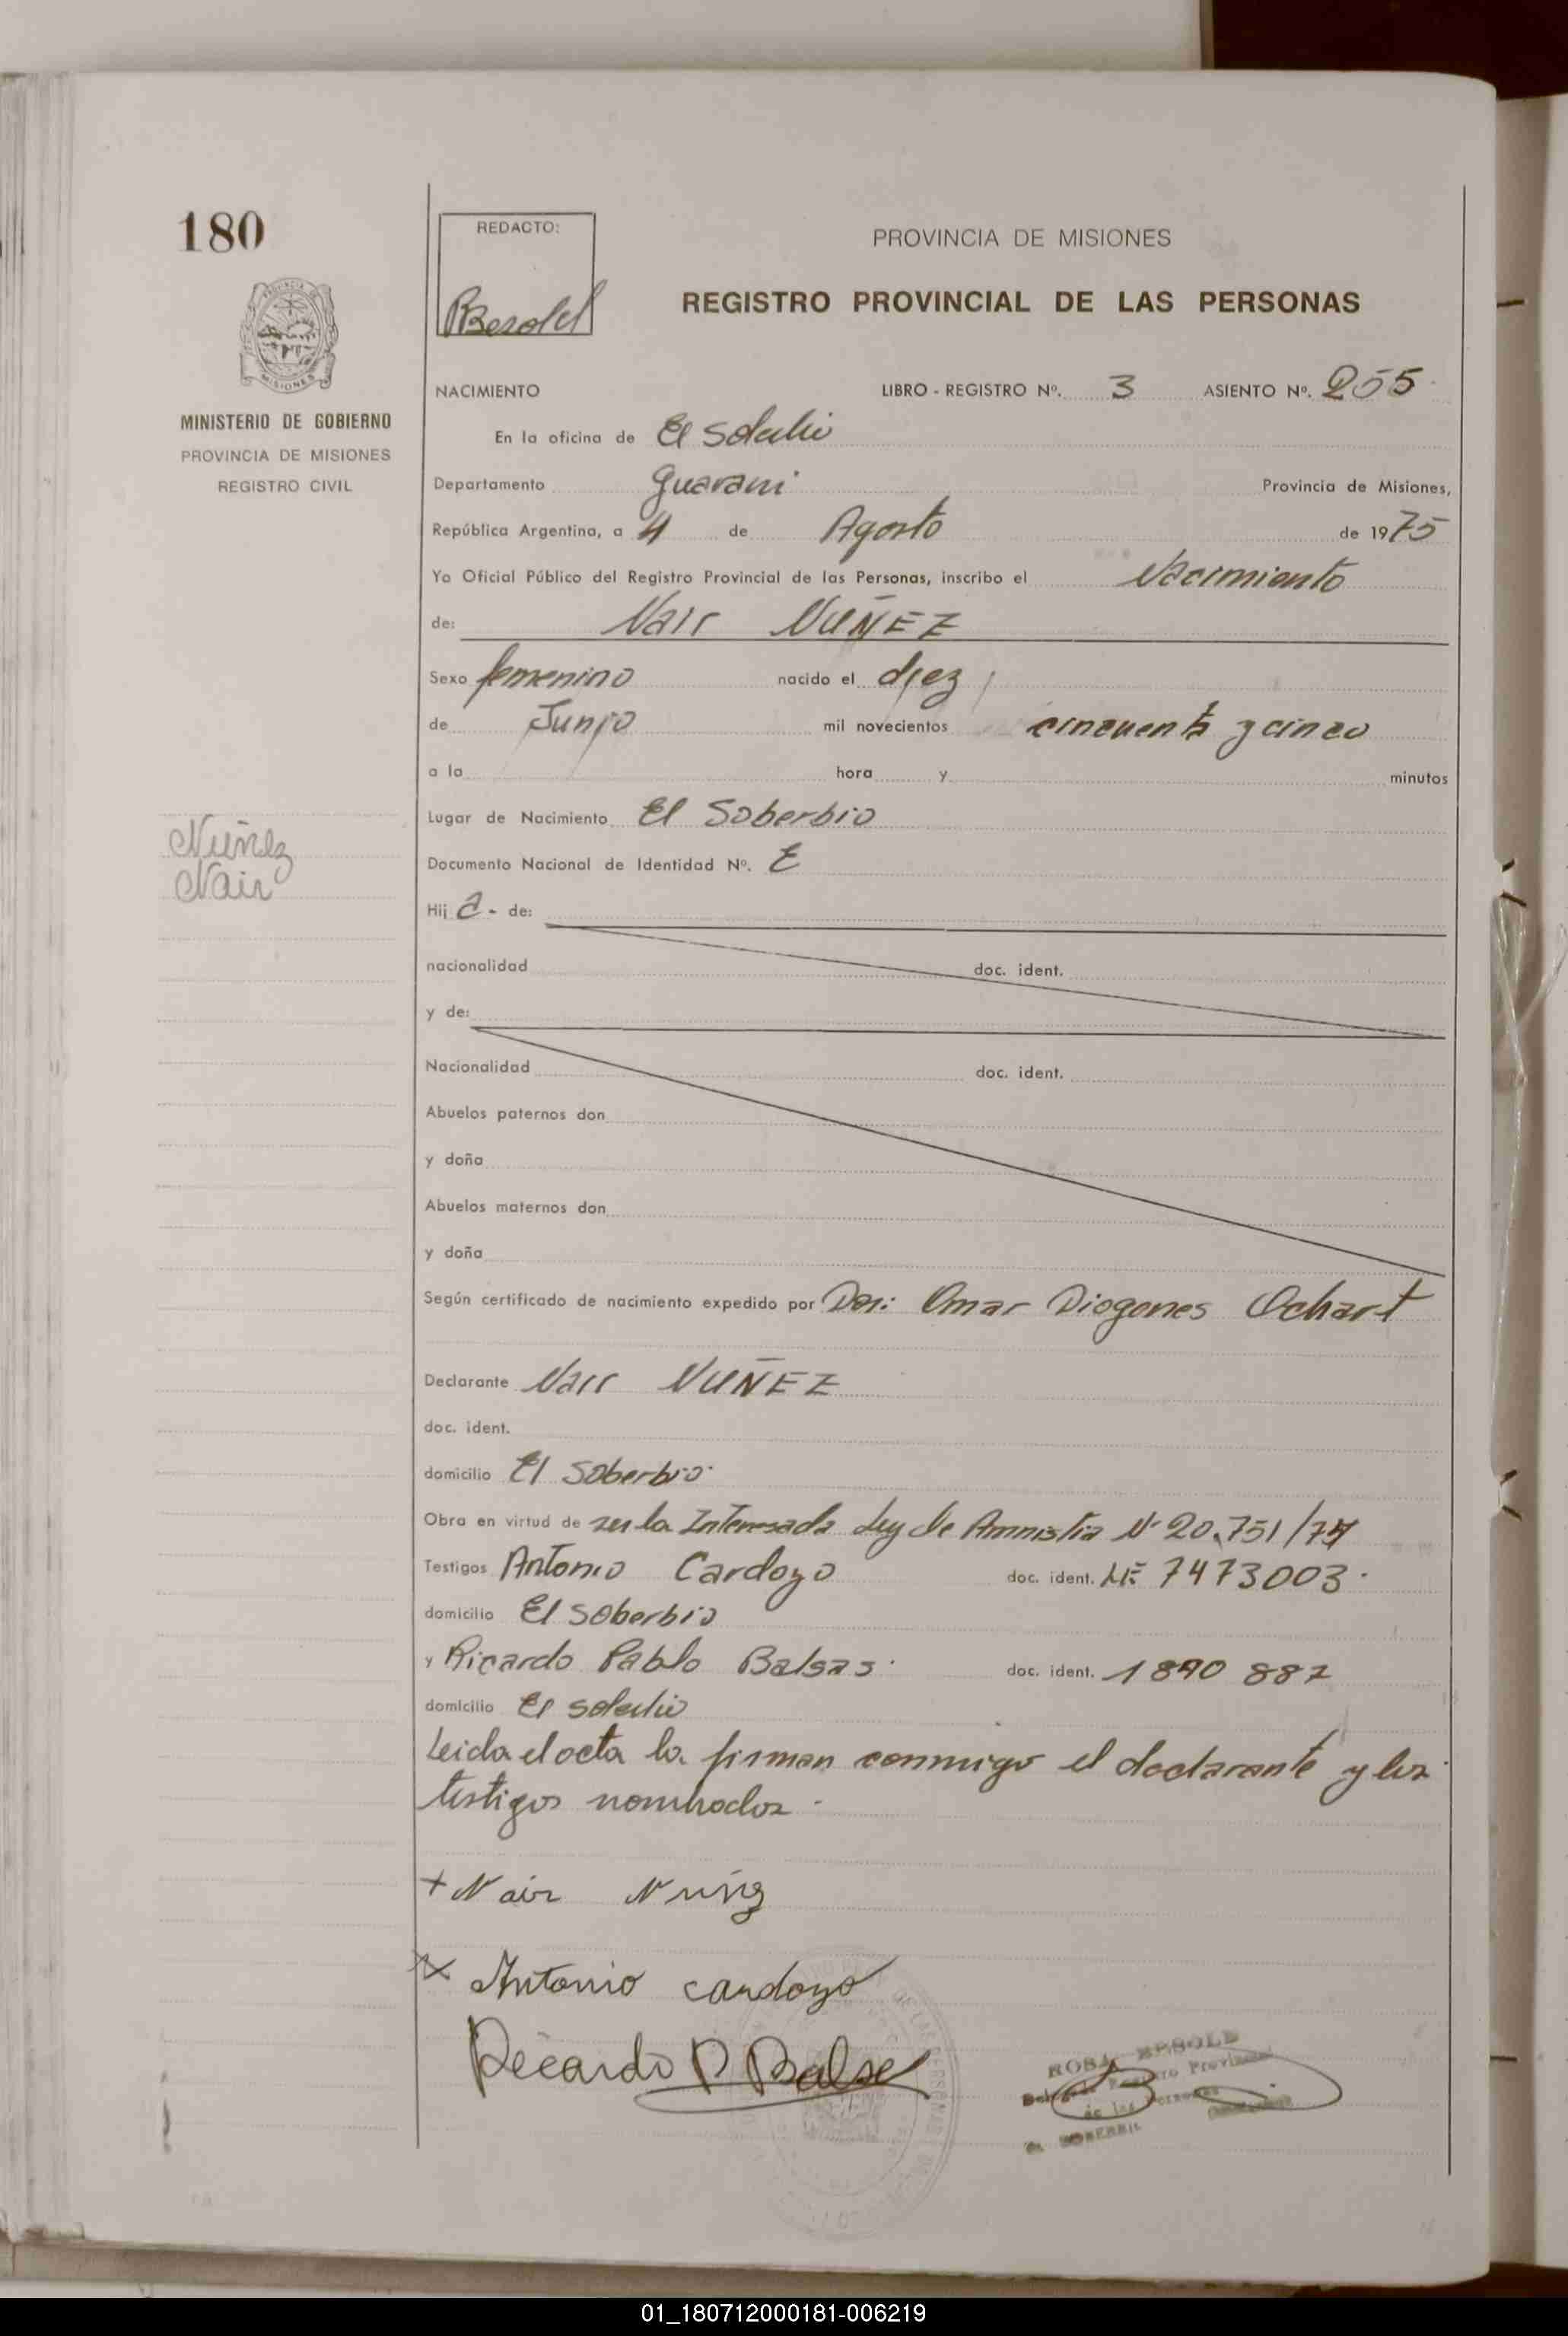 180
REDACTO:
PROVINCIA DE MISIONES
REGISTRO PROVINCIAL DE LAS PERSONAS
MINISTERIO DE GOBIERNO
PROVINCIA DE MISIONES
REGISTRO CIVIL
NACIMIENTO LIBRO - REGISTRO Nº. 3 ASIENTO Nº. 255
En la oficina de El Soberbio
Departamento Guarani Provincia de Misiones,
República Argentina, a 4 de Agosto de 1975
Yo Oficial Público del Registro Provincial de las Personas, inscribo el Nacimiento
de: Nair NUÑEZ
Sexo femenino nacido el diez
de Junio mil novecientos cincuenta y cinco
a la hora y minutos
Lugar de Nacimiento El Soberbio
Núñez
Nair
Documento Nacional de Identidad Nº.
Hij a - de:
nacionalidad doc. ident.
y de:
Nacionalidad doc. ident.
Abuelos paternos don
y doña
Abuelos maternos don
y doña
Según certificado de nacimiento expedido por Omar Diogenes Ochart
Declarante Nair NUÑEZ
doc. ident.
domicilio El Soberbio
Obra en virtud de ser la Interesada Ley de Amnistia Nº 20.751/74
Testigos Antonio Cardozo doc. ident. LE 7473003.
domicilio El Soberbio
y Ricardo Pablo Balsas. doc. ident. 1890 887
domicilio El Soberbio
Leida el acta la firman conmigo el declarante y los
testigos nombrados.
+ Nair Nuñez
x Antonio Cardozo
Ricardo P Balsa
ROSA BESOLD
Registro Provincial
de las Personas
EL SOBERBIO
01_180712000181-006219